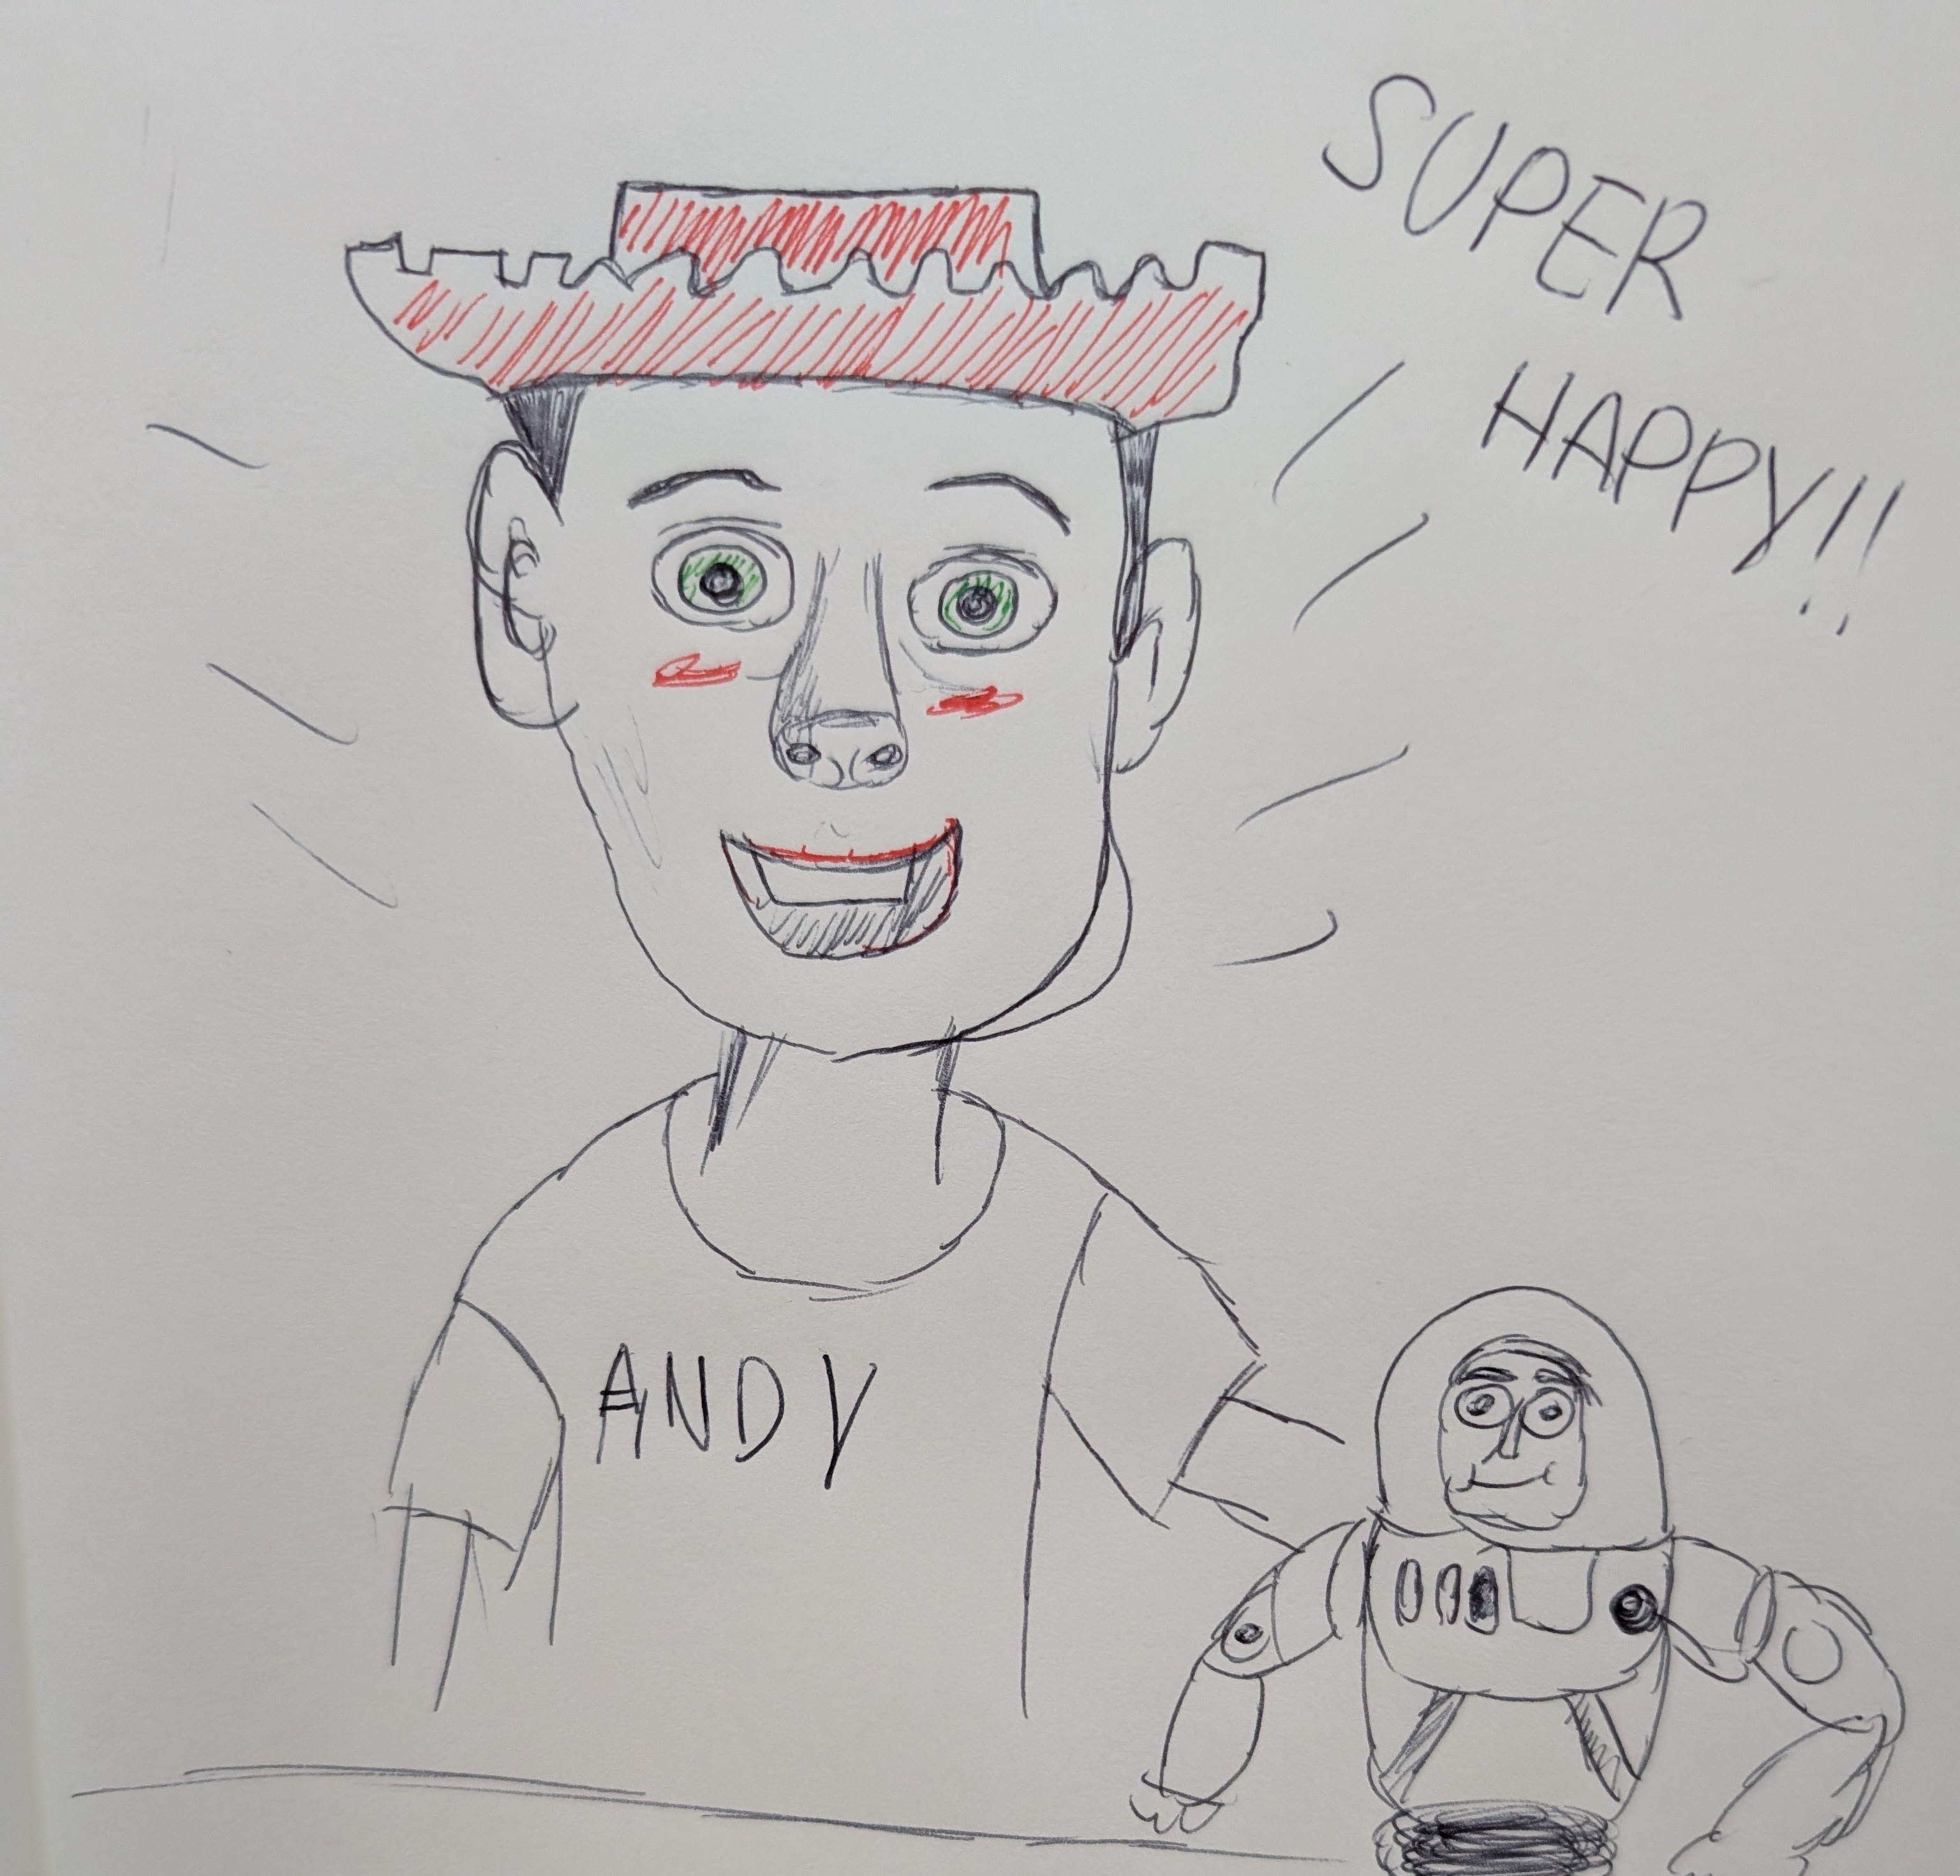 SUPER
HAPPY!!
ANDY